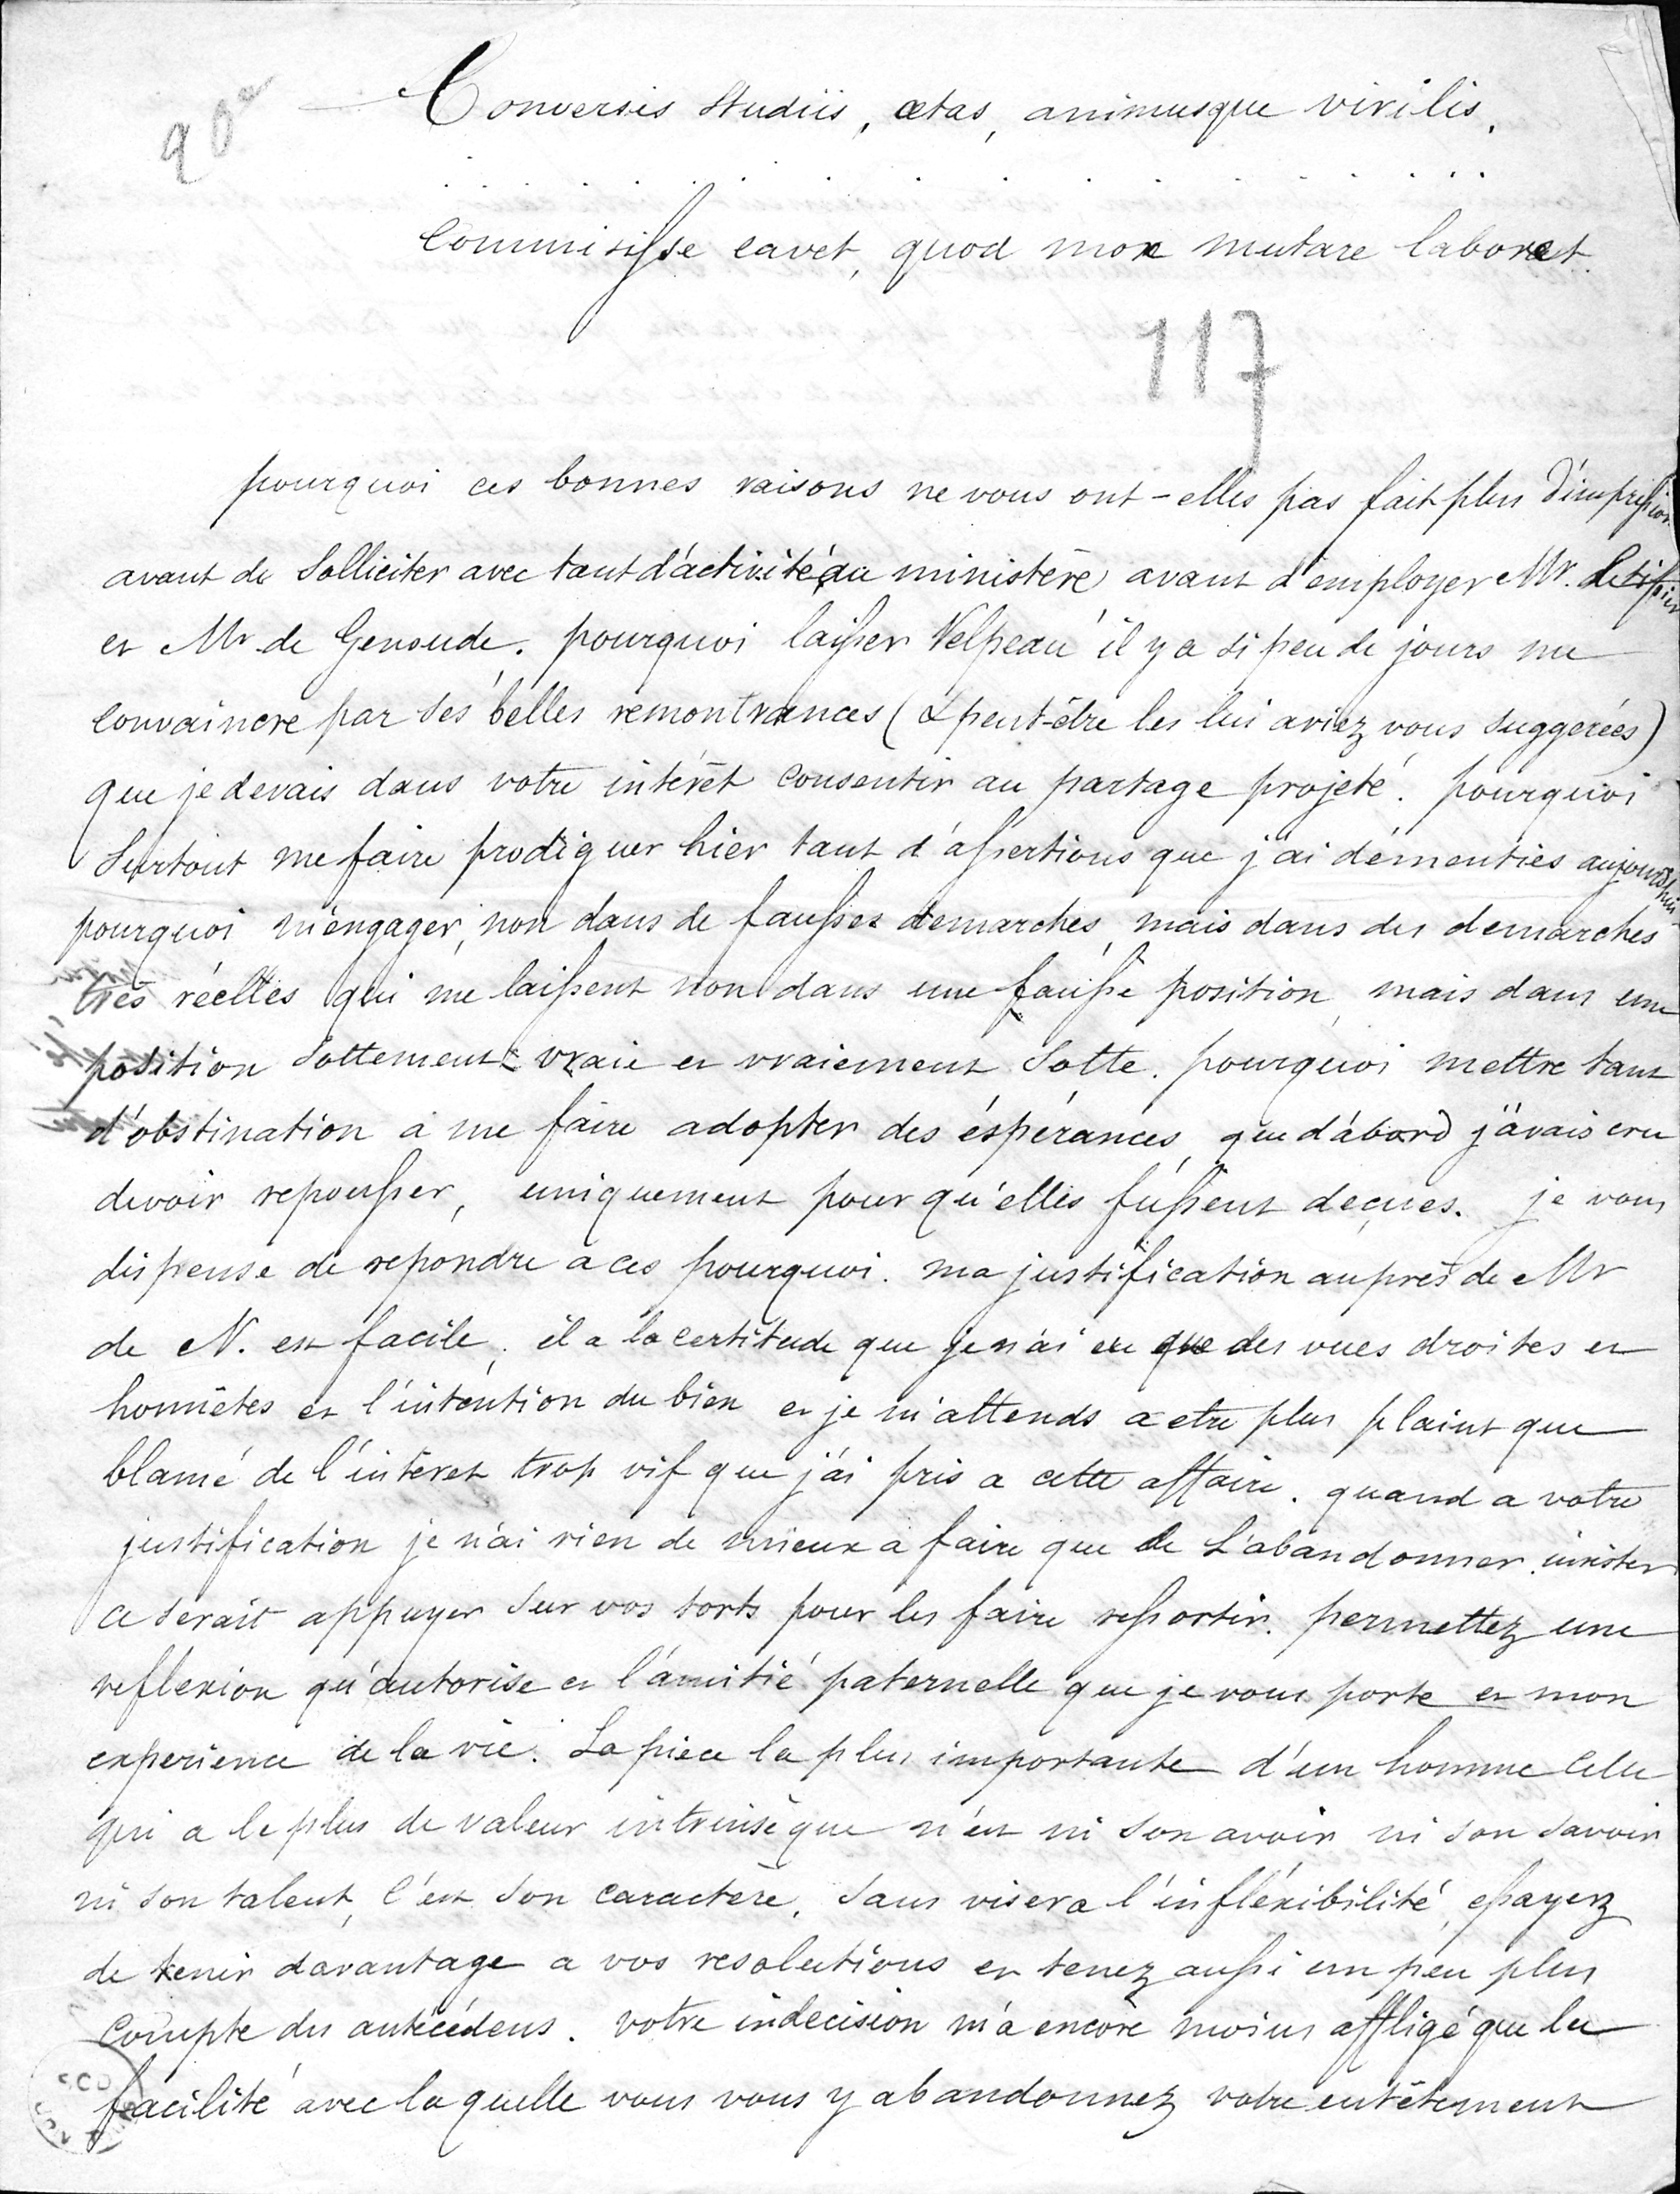 90
Conversis studiis, ætas, animusque virilis,
. . . . . . . . . . . . . .
Commisisse cavet, quod mox mutare laboret.
117
pourquoi ces bonnes raisons ne vous ont-elles pas fait plus d'impression
avant de solliciter avec tant d'activité au ministère avant d'employer Mr.
et Mr de Genoude. pourquoi laisser Velpeau il y a si peu de jours me
convaincre par ses belles remontrances (& peut-être les lui aviez vous suggerées)
que je devais dans votre intérêt consentir au partage projeté. pourquoi
surtout me faire prodiguer hier tant d'assertions que j'ai démenties aujourd'hui
pourquoi m'engager, non dans de fausses demarches, mais dans des demarches
très réelles qui me laissent non dans une fausse position, mais dans une
position sottement vraie et vraiement sotte. pourquoi mettre tant
d'obstination a me faire adopter des éspérances, que d'abord j'avais cru
devoir repousser, uniquement pour qu'elles fussent deçues. je vous
dispense de repondre a ces pourquoi. ma justification auprès de Mr
de N. est facile, il a la certitude que je n'ai eu que des vues droites et
honnêtes et l'intention du bien et je m'attends a etre plus plaint que
blamé de l'intéret trop vif que j'ai pris a cette affaire. quand a votre
justification je n'ai rien de mieux a faire que de l'abandonner. insister
ce serait appuyer sur vos torts pour les faire ressortir. permettez une
reflexion qu'autorise et l'amitié paternelle que je vous porte et mon
experience de la vie. La piece la plus importante d'un homme celle
qui a le plus de valeur intrinsèque n'est ni son avoir ni son savoir
ni son talent, c'est son caractère. sans viser a l'infléxibilité, essayez
de tenir davantage a vos resolutions et tenez aussi un peu plus
compte des antécédens. votre indecision m'a encore moins affligé que la
facilité avec laquelle vous vous y abandonnez votre entêtement